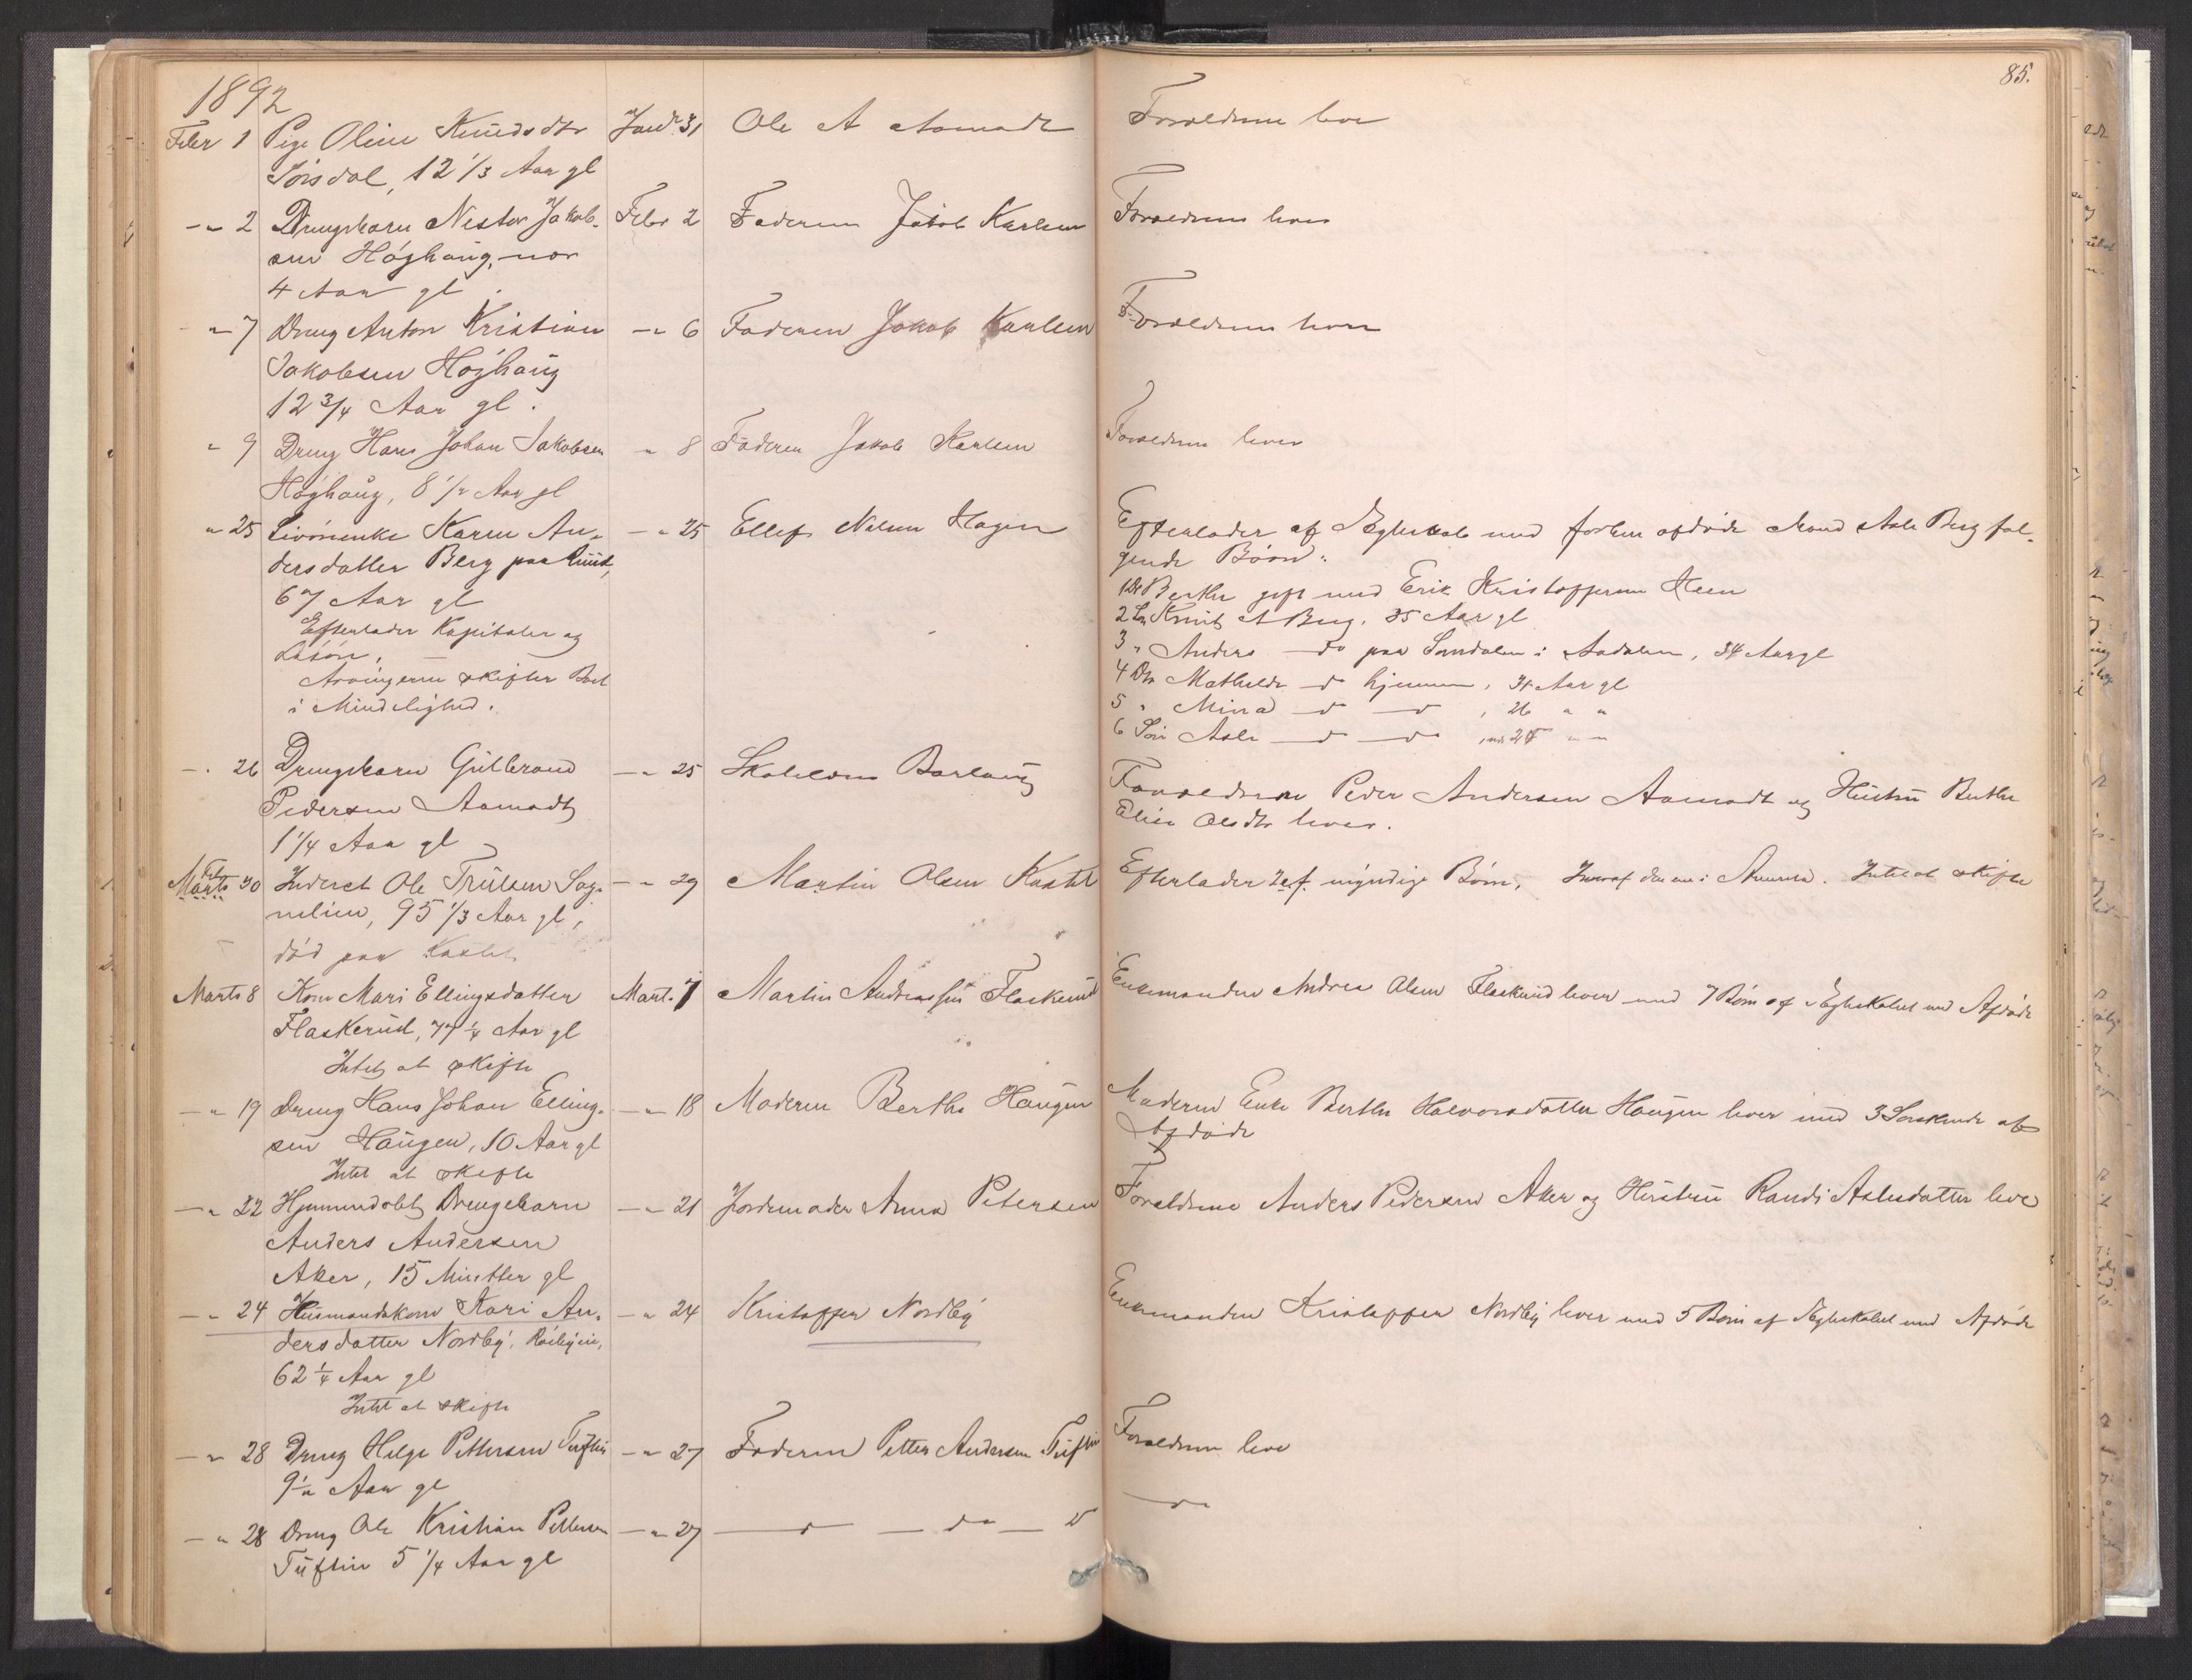 85.
1892
Febr 1 Pige Oline Knudsdtr Jand. 31 Ole A Aamodt Forældrene leve
Sörsdal, 12 1/3 Aar gl
-"- 2 Drengebarn Nestor Jakob- Febr 2 Faderen Jakob Karlsen Forældrene lever
sen Höghaug, nor
4 Aar gl.
-"- 7 Dreng Anton Kristian -"- 6 Faderen Jakob Karlsen Forældrene lever
Jakobsen Höghaug
12 3/4 Aar gl.
" 9 Dreng Hans Johan Jakobsen " 8 Faderen Jakob Karlsen Forældrene lever
Höghaug, 8 1/2 Aar gl
" 25 Livörenke Karen An- -"- 25 Ellef Nelsen Hagen Efterlader af Ægteskab med forhen afdöde Mand Asle Berg föl-
dersdatter Berg paa gende Börn:
67 Aar gl 1 Dtr Berthe gift med Erik Kristoffersen Heen
Efterlader Kapitaler og 2 Sön Knut A Berg, 35 Aar gl
Lösöre. 3 " Anders do paa Sandalen i Aadalen, 34 Aar gl
Arvingerne skifter Boet 4 Dtr Mathilde do hjemme, 31 Aar gl
i Mindelighed. 5 " Mina do do, 26 " "
6 Sön Asle do do, 24 " "
-"- 26 Drengebarn Gulbrand -"- 25 Skoleldrer Borlaug Forældrene Peder Andersen Aamodt og Hustru Berthe
Pedersen Aamodt Elise Olsdtr lever.
1 1/4 Aar gl
Febr
Marts 30 Inderst Ole Trulsen Sag- -"- 29 Martin Olsen Kastet Efterlader 2 myndige Börn, hvoraf den ene i Amerika. Intet at skifte
nelien, 95 1/3 Aar gl,
död paa Kastet
Marts 8 Kone Mari Ellingsdatter Mart. 7 Martin Andreassen Flaskerud Enkemanden Andreas Olsen Flaskerud lever med 7 Börn af Ægteskabet med Afdöde
Flaskerud, 77 1/4 Aar gl
Intet at skifte
-"- 19 Dreng Hans Johan Elling- -"- 18 Moderen Berthe Haugen Moderen Enke Berthe Halvorsdatter Haugen lever med 3 Söskende af
sen Haugen, 10 Aar gl Afdöde
Intet at skifte
-"- 22 Hjemmedöbt Drengebarn -"- 21 Jordemoder Anna Petersen Forældrene Anders Pedersen Aker og Hustru Randi Aslesdatter leve
Anders Andersen
Aker, 15 Minutter gl
-"- 24 Husmandskone Kari An- -"- 24 Kristoffer Nordby Enkemanden Kristoffer Nordby lever med 5 Börn af Ægteskabet med Afdöde
dersdatter Nordby,
62 1/4 Aar gl
Intet at skifte
-"- 28 Dreng Helge Pettersen Tuftin -"- 27 Faderen Petter Andersen Tuftin Forældrene leve
9 1/2 Aar gl
-"- 28 Dreng Ole Kristian Pettersen -"- 27 do do do do
Tuftin 5 1/4 Aar gl